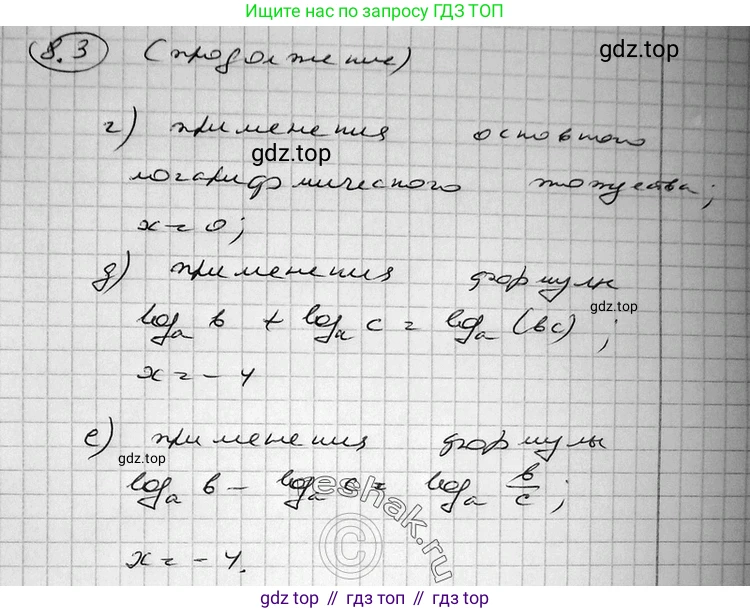 Ищите нас по запросу ГДЗ ТОП
8.3 (продолжение)
gdz.top
г) применения основного
gdz.top
логарифмического тождества;
x = 0;
д) применения формулы
gdz.top
log_a b + log_a c = log_a (bc);
x = -4
е) применения формулы
gdz.top
log_a b - log_a c = log_a b/c;
x = -4.
reshak.ru
©
gdz.top // gdz.top // gdz.top // gdz.top